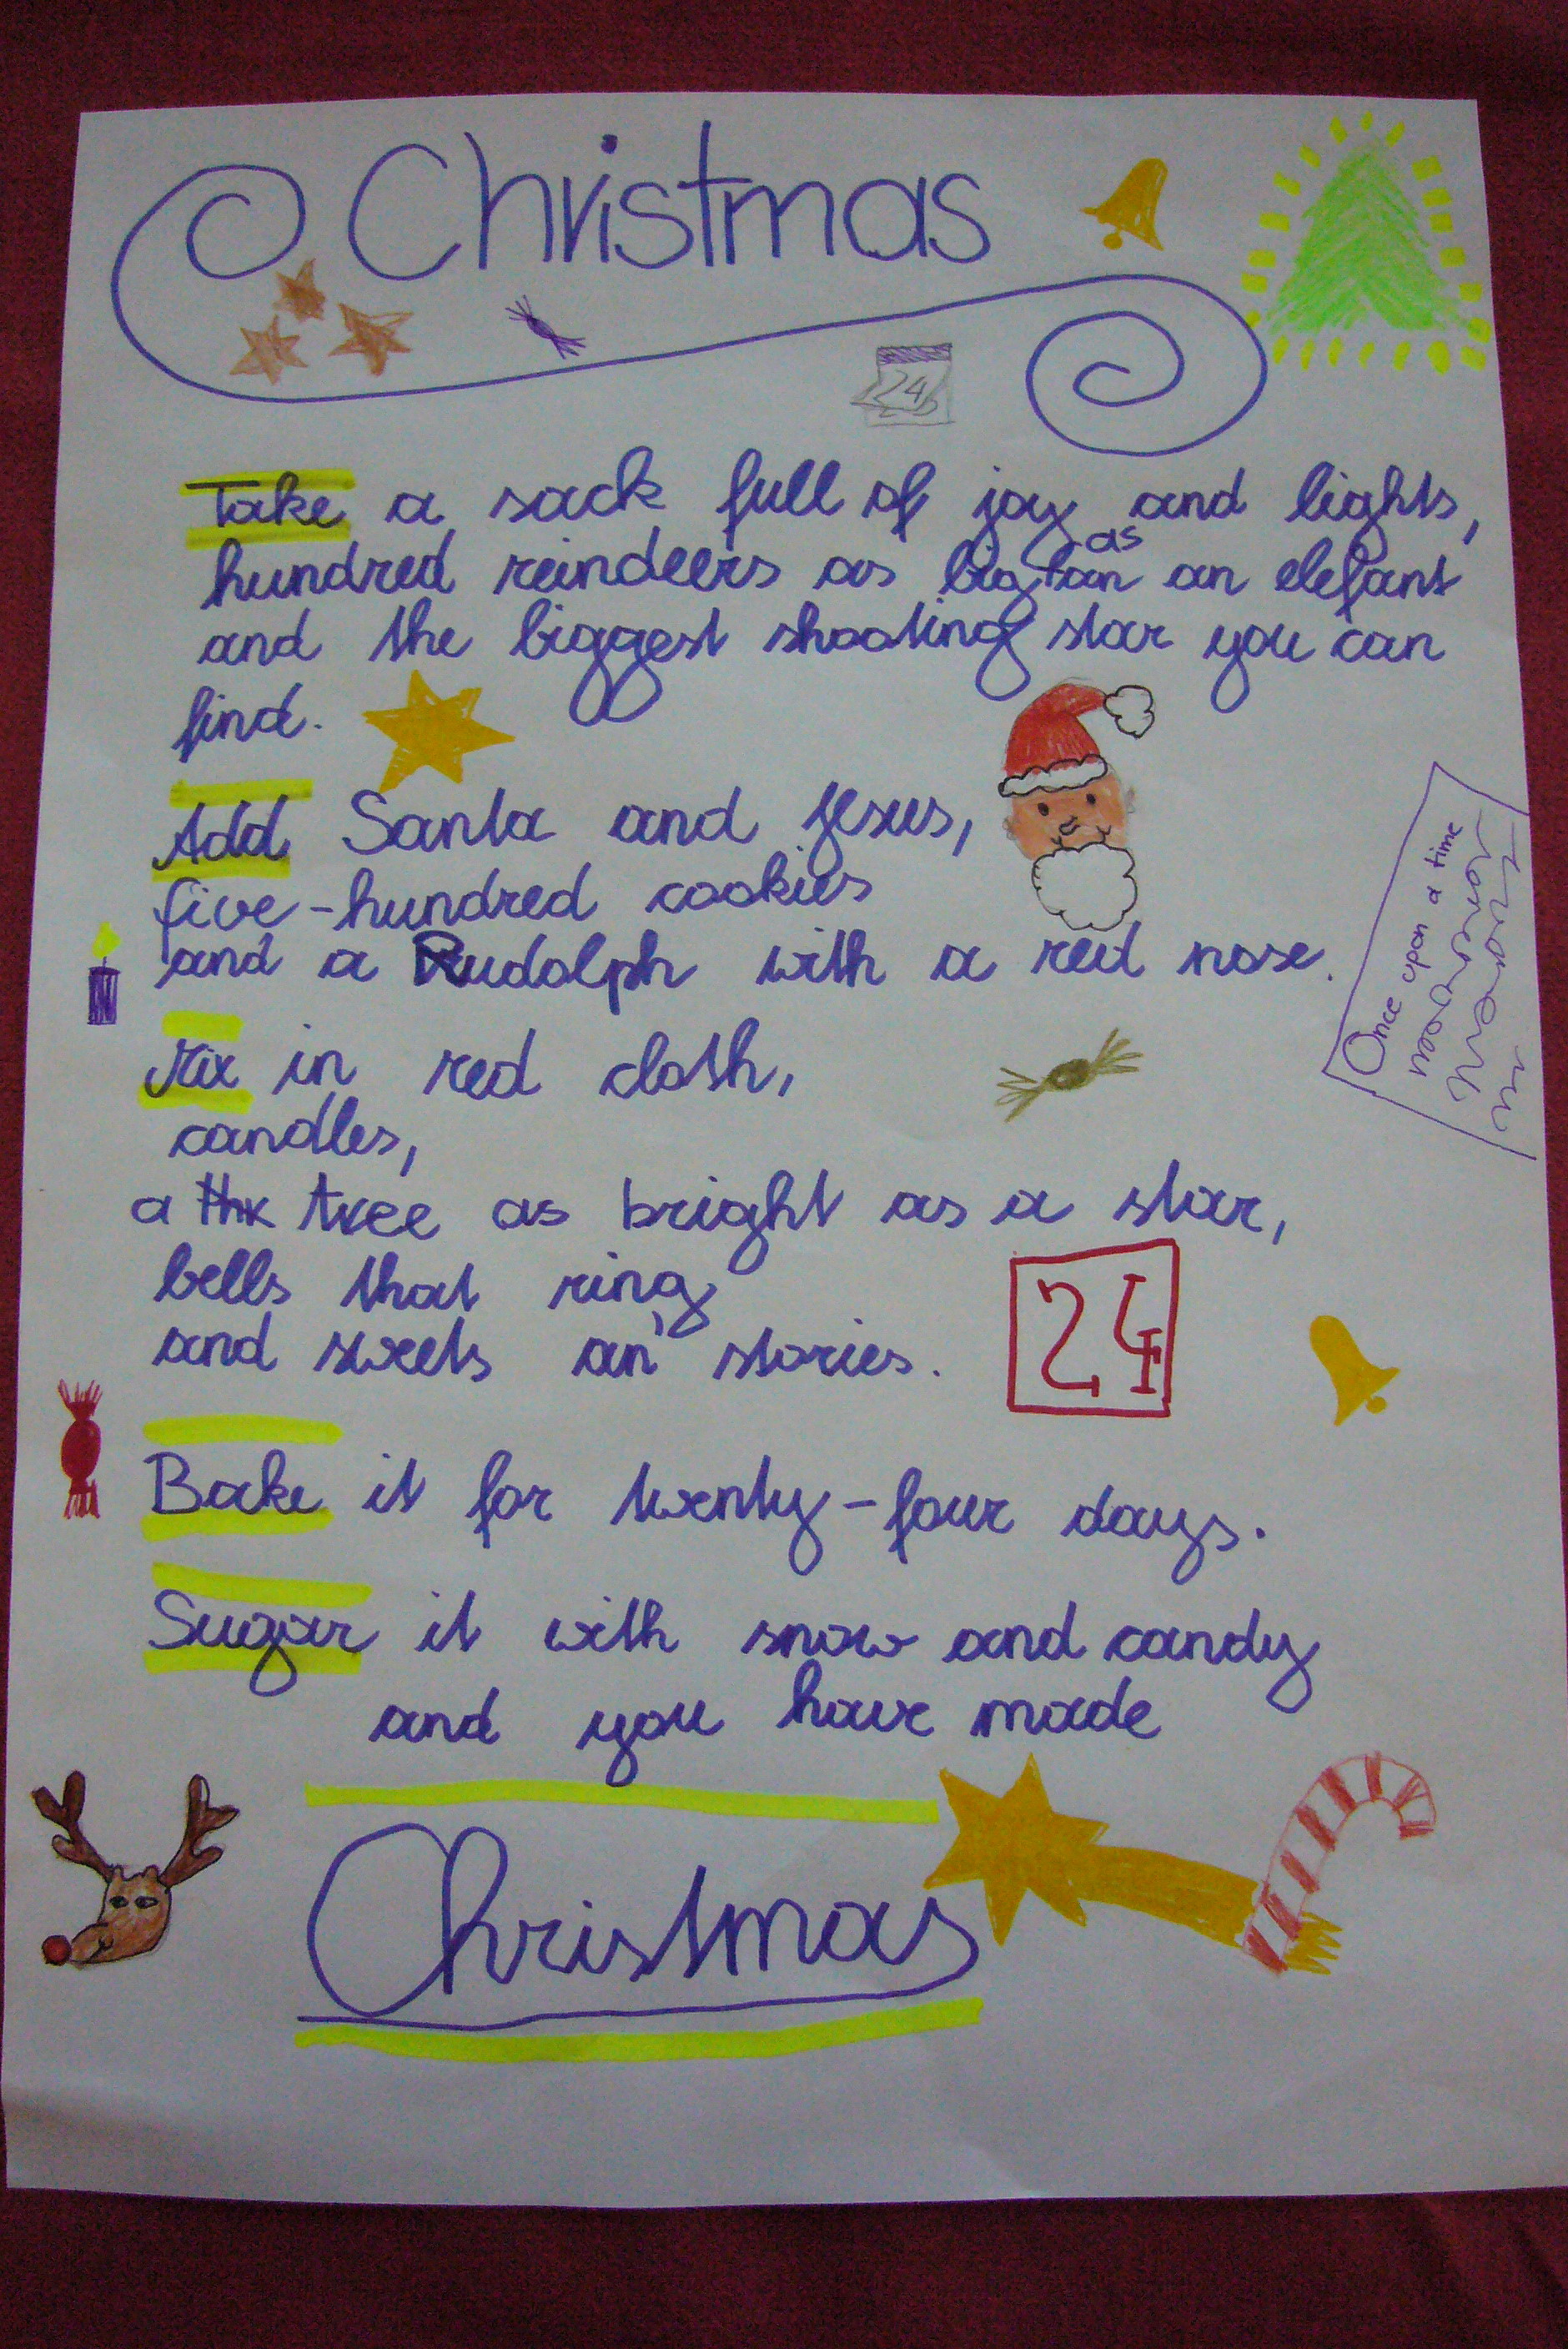 Christmas
24
Take a sack full of joy and lights,
hundred reindeers as big as an elefant
and the biggest shooting star you can
find.
Add Santa and Jesus,
five-hundred cookies
and a Rudolph with a red nose.
Once upon a time
Mix in red cloth,
candles,
a tree as bright as a star,
bells that ring
and sweets an' stories.
24
Bake it for twenty-four days.
Sugar it with snow and candy
and you have made
Christmas